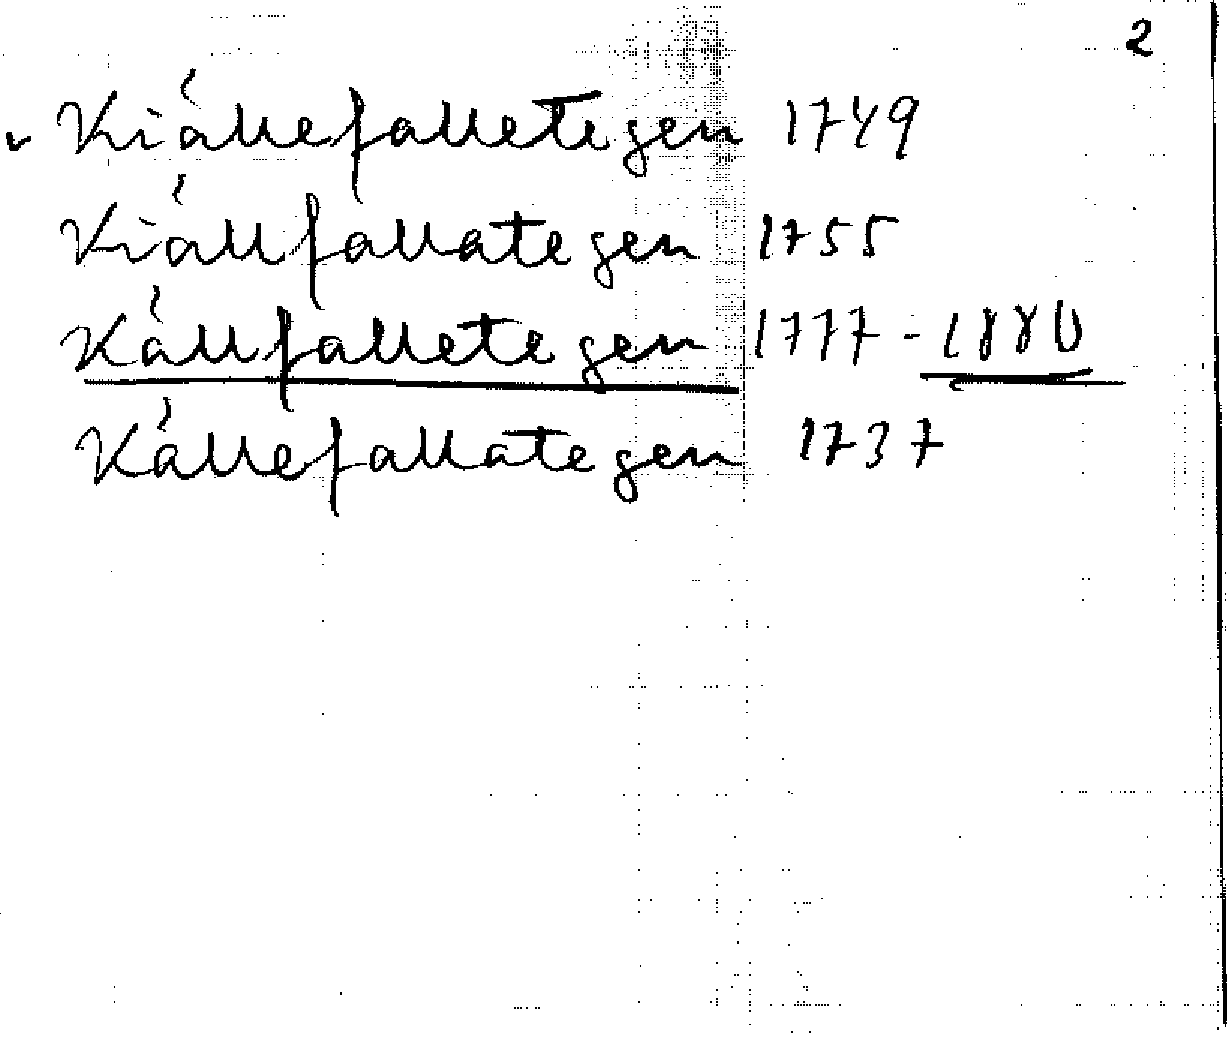 2
v Kiällefalletegen 1749
Kiällfallategen 1755
Källfalletegen 1777 - 1880
Källefallategen 1737